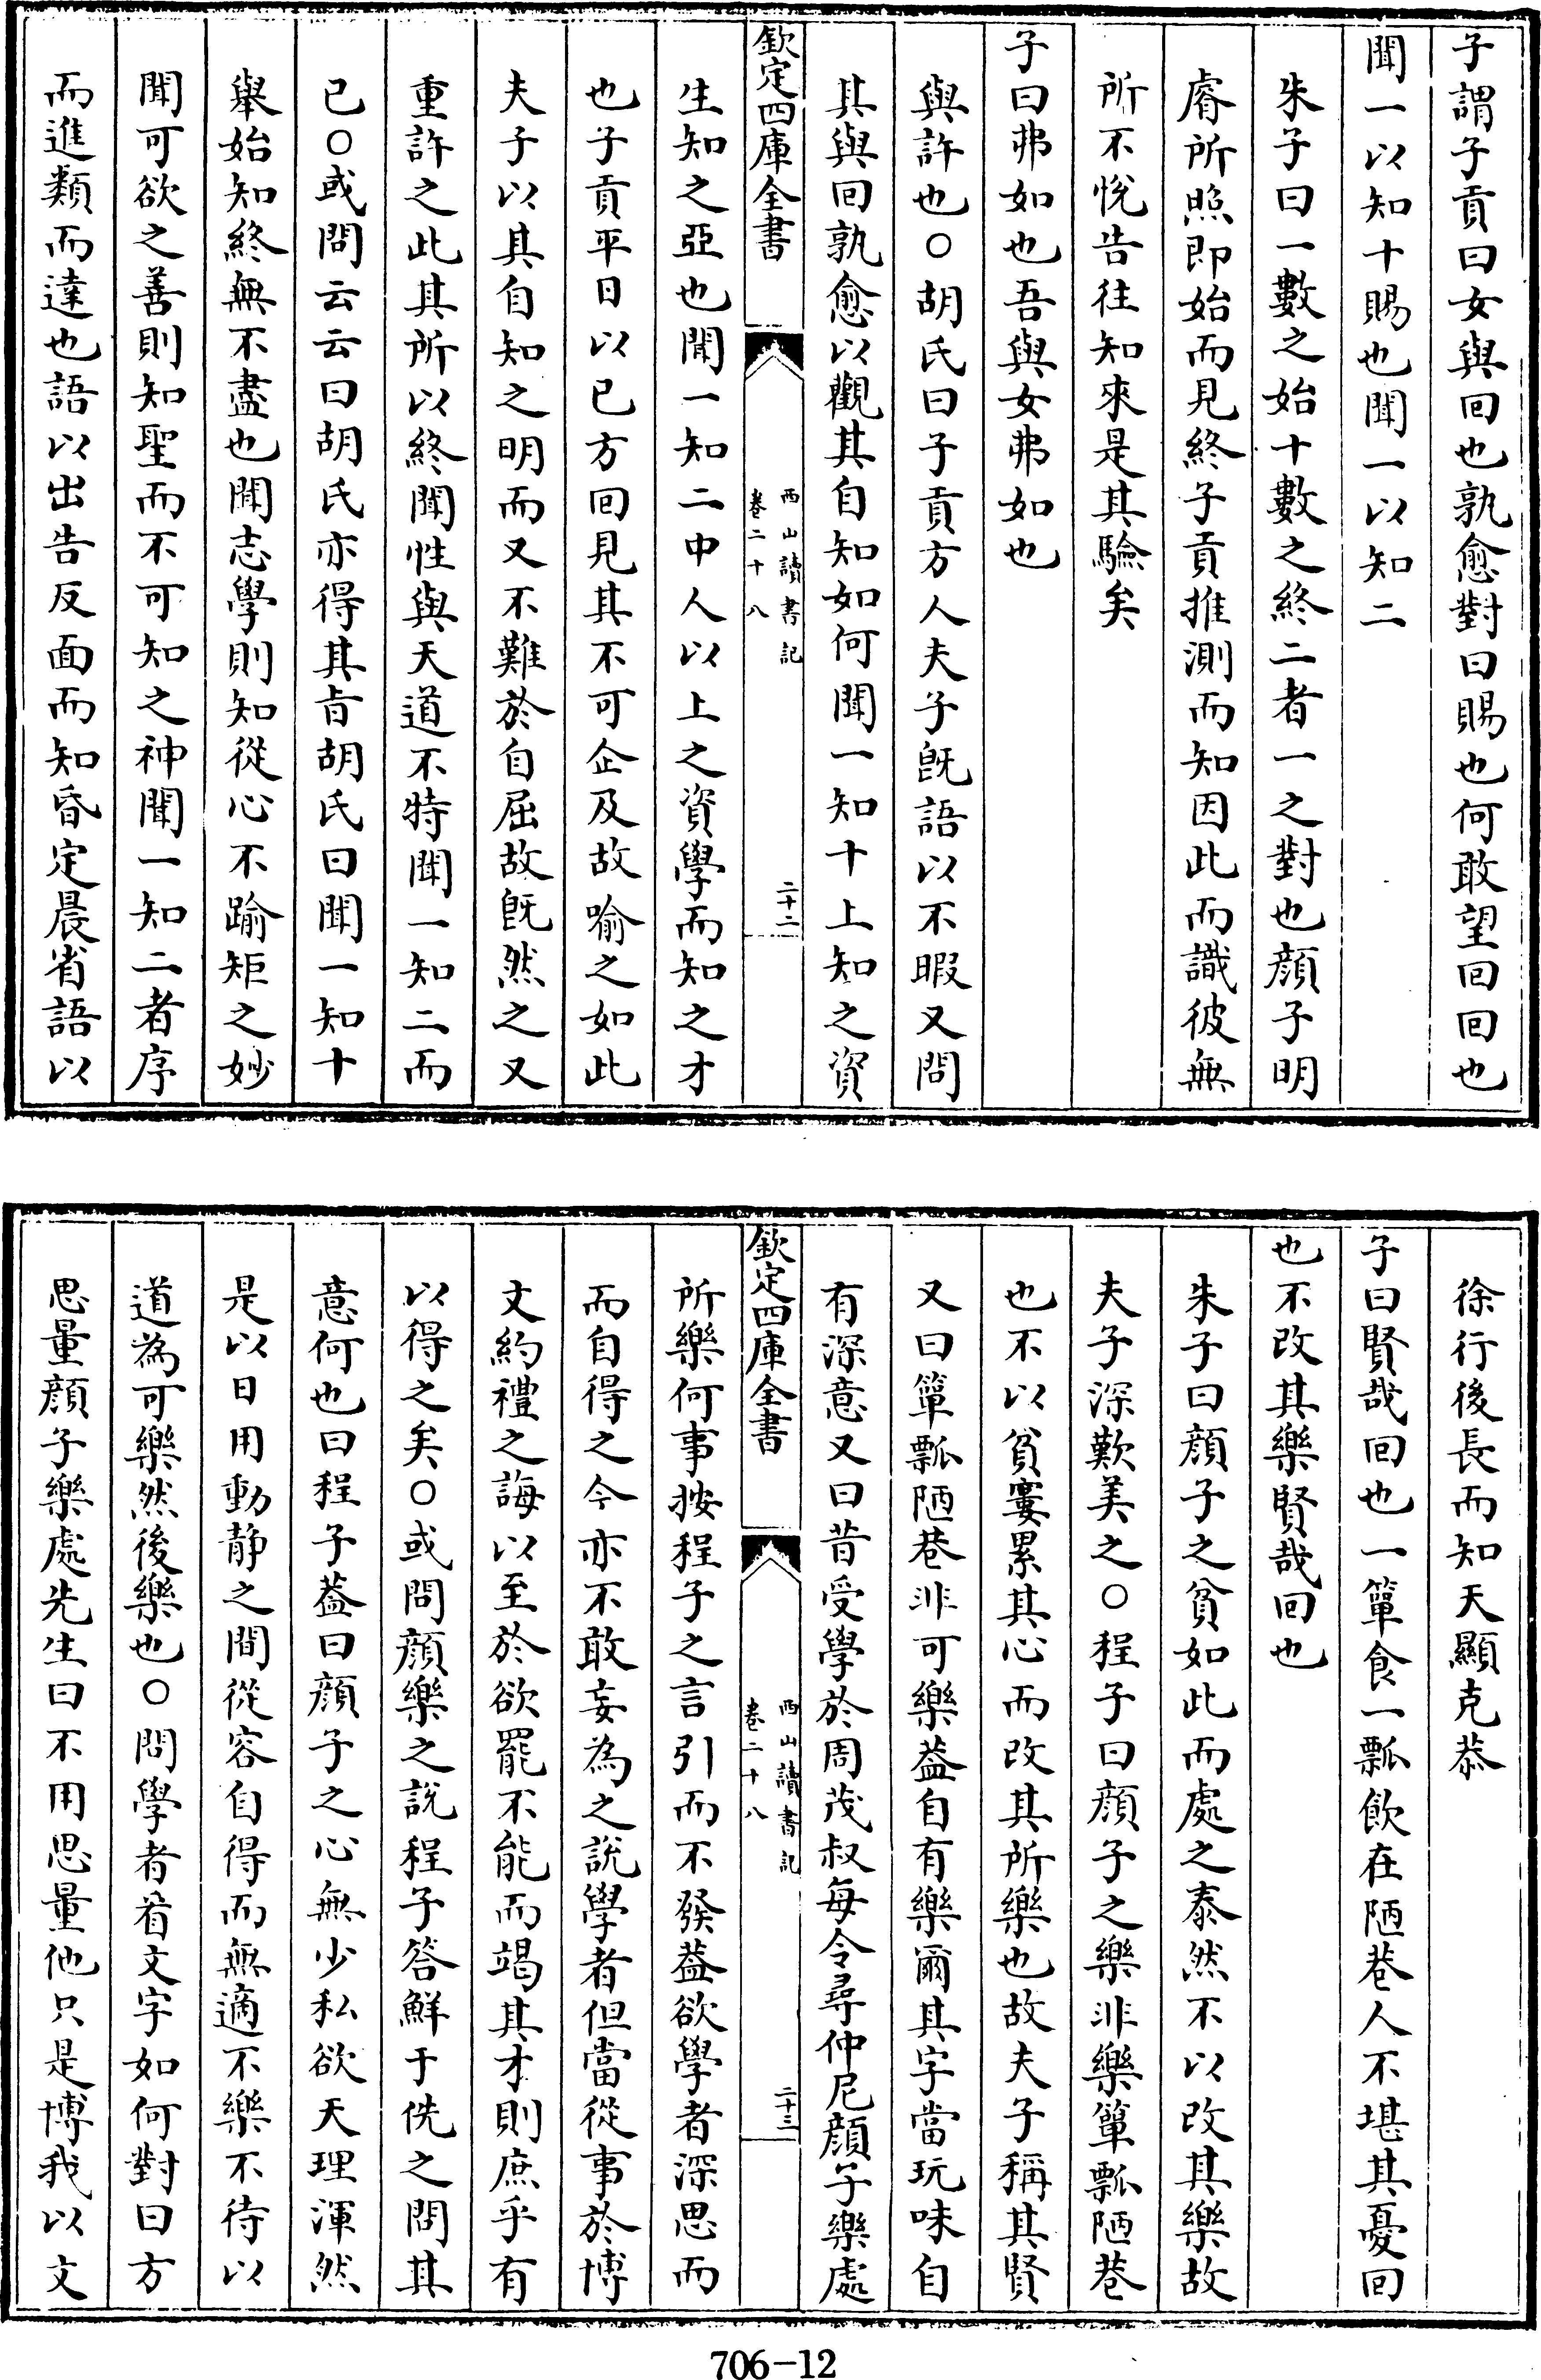 子謂子貢曰女與回也孰愈對曰賜也何敢望回回也
聞一以知十賜也聞一以知二
朱子曰一數之始十數之終二者一之對也顔子明
睿所照即始而見終子貢推測而知因此而識彼無
所不悅告往知來是其驗矣
子曰弗如也吾與女弗如也
與許也○胡氏曰子貢方人夫子既語以不暇又問
其與回孰愈以觀其自知如何聞一知十上知之資
欽定四庫全書
西山讀書記
卷二十八
二十二
生知之亞也聞一知二中人以上之資學而知之才
也子貢平日以已方回見其不可企及故喻之如此
夫子以其自知之明而又不難於自屈故既然之又
重許之此其所以終聞性與天道不特聞一知二而
已○或問云云曰胡氏亦得其旨胡氏曰聞一知十
舉始知終無不盡也聞志學則知從心不踰矩之妙
聞可欲之善則知聖而不可知之神聞一知二者序
而進類而達也語以出告反面而知昏定晨省語以
徐行後長而知天顯克恭
子曰賢哉回也一簞食一瓢飲在陋巷人不堪其憂回
也不改其樂賢哉回也
朱子曰顔子之貧如此而處之泰然不以改其樂故
夫子深歎美之○程子曰顔子之樂非樂簞瓢陋巷
也不以貧窶累其心而改其所樂也故夫子稱其賢
又曰簞瓢陋巷非可樂葢自有樂爾其字當玩味自
有深意又曰昔受學於周茂叔每令尋仲尼顔子樂處
欽定四庫全書
西山讀書記
卷二十八
二十三
所樂何事按程子之言引而不發葢欲學者深思而
而自得之今亦不敢妄為之說學者但當從事於博
文約禮之誨以至於欲罷不能而竭其才則庶乎有
以得之矣○或問顔樂之說程子答鮮于侁之問其
意何也曰程子葢曰顔子之心無少私欲天理渾然
是以日用動静之間從容自得而無適不樂不待以
道為可樂然後樂也○問學者看文字如何對曰方
思量顔子樂處先生曰不用思量他只是博我以文
706-12